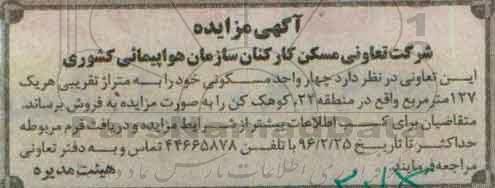 آگهی مزایده
شرکت تعاونی مسکن کارکنان سازمان هواپیمائی کشوری
این تعاونی در نظر دارد چهار واحد مسکونی خود را به متراژ تقریبی هریک
۱۲۷ مترمربع واقع در منطقه ۲۲، کوهک کن را به صورت مزایده به فروش برساند.
متقاضیان برای کسب اطلاعات بیشتر از شرایط مزایده و دریافت فرم مربوطه
حداکثر تا تاریخ ۹۶/۲/۲۵ با تلفن ۴۴۶۶۵۸۷۸ تماس و به دفتر تعاونی
مراجعه فرمایند. هیئت مدیره